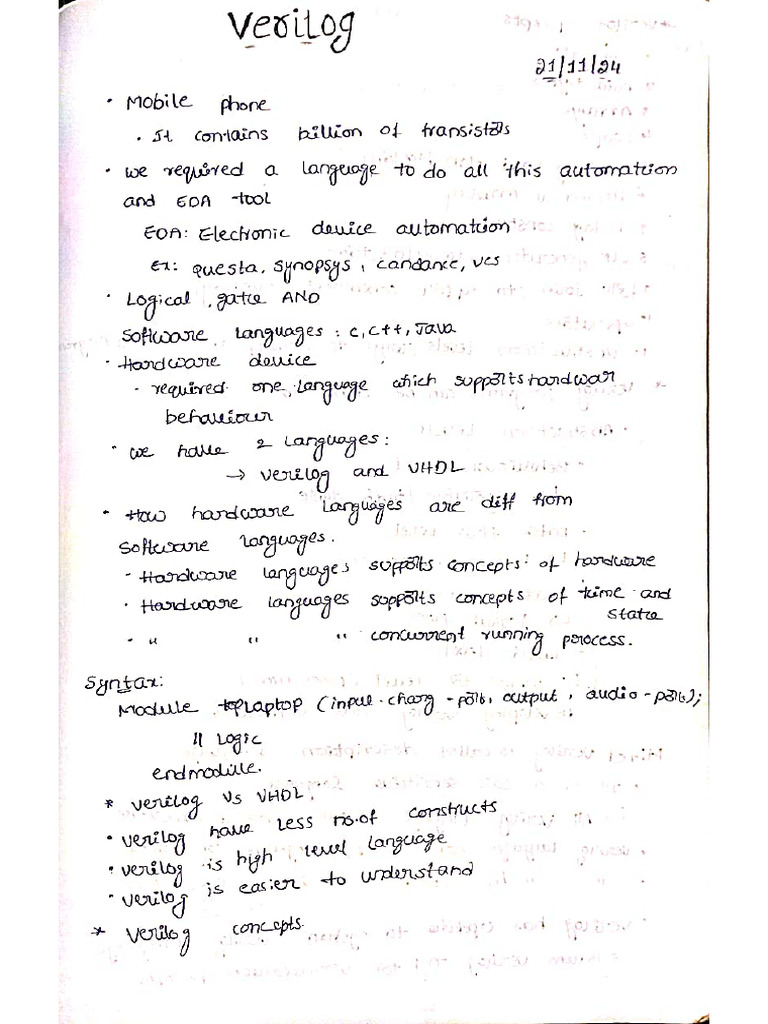 Verilog
21/11/24
• Mobile phone
• It contains billion of transistors
• we required a language to do all this automation
and EDA -tool
EDA: Electronic device automation
Ex: questa, synopsys, candance, vcs
• Logical, gate AND
software languages: c, c++, Java
• Hardware device
• required one, language which supports hardwar
behaviour
• we have 2 languages:
→ verilog and VHDL
• How hardware languages are diff from
software languages.
• Hardware languages supports concepts of hardware
• Hardware languages supports concepts of time and
state
• " " " concurrent running process.
Syntax:
Module toplaptop (input charg-port, output, audio-port);
// Logic
endmodule.
* verilog vs VHDL.
• verilog have less no.of constructs
• verilog is high level language
• verilog is easier to understand
* Verilog concepts.